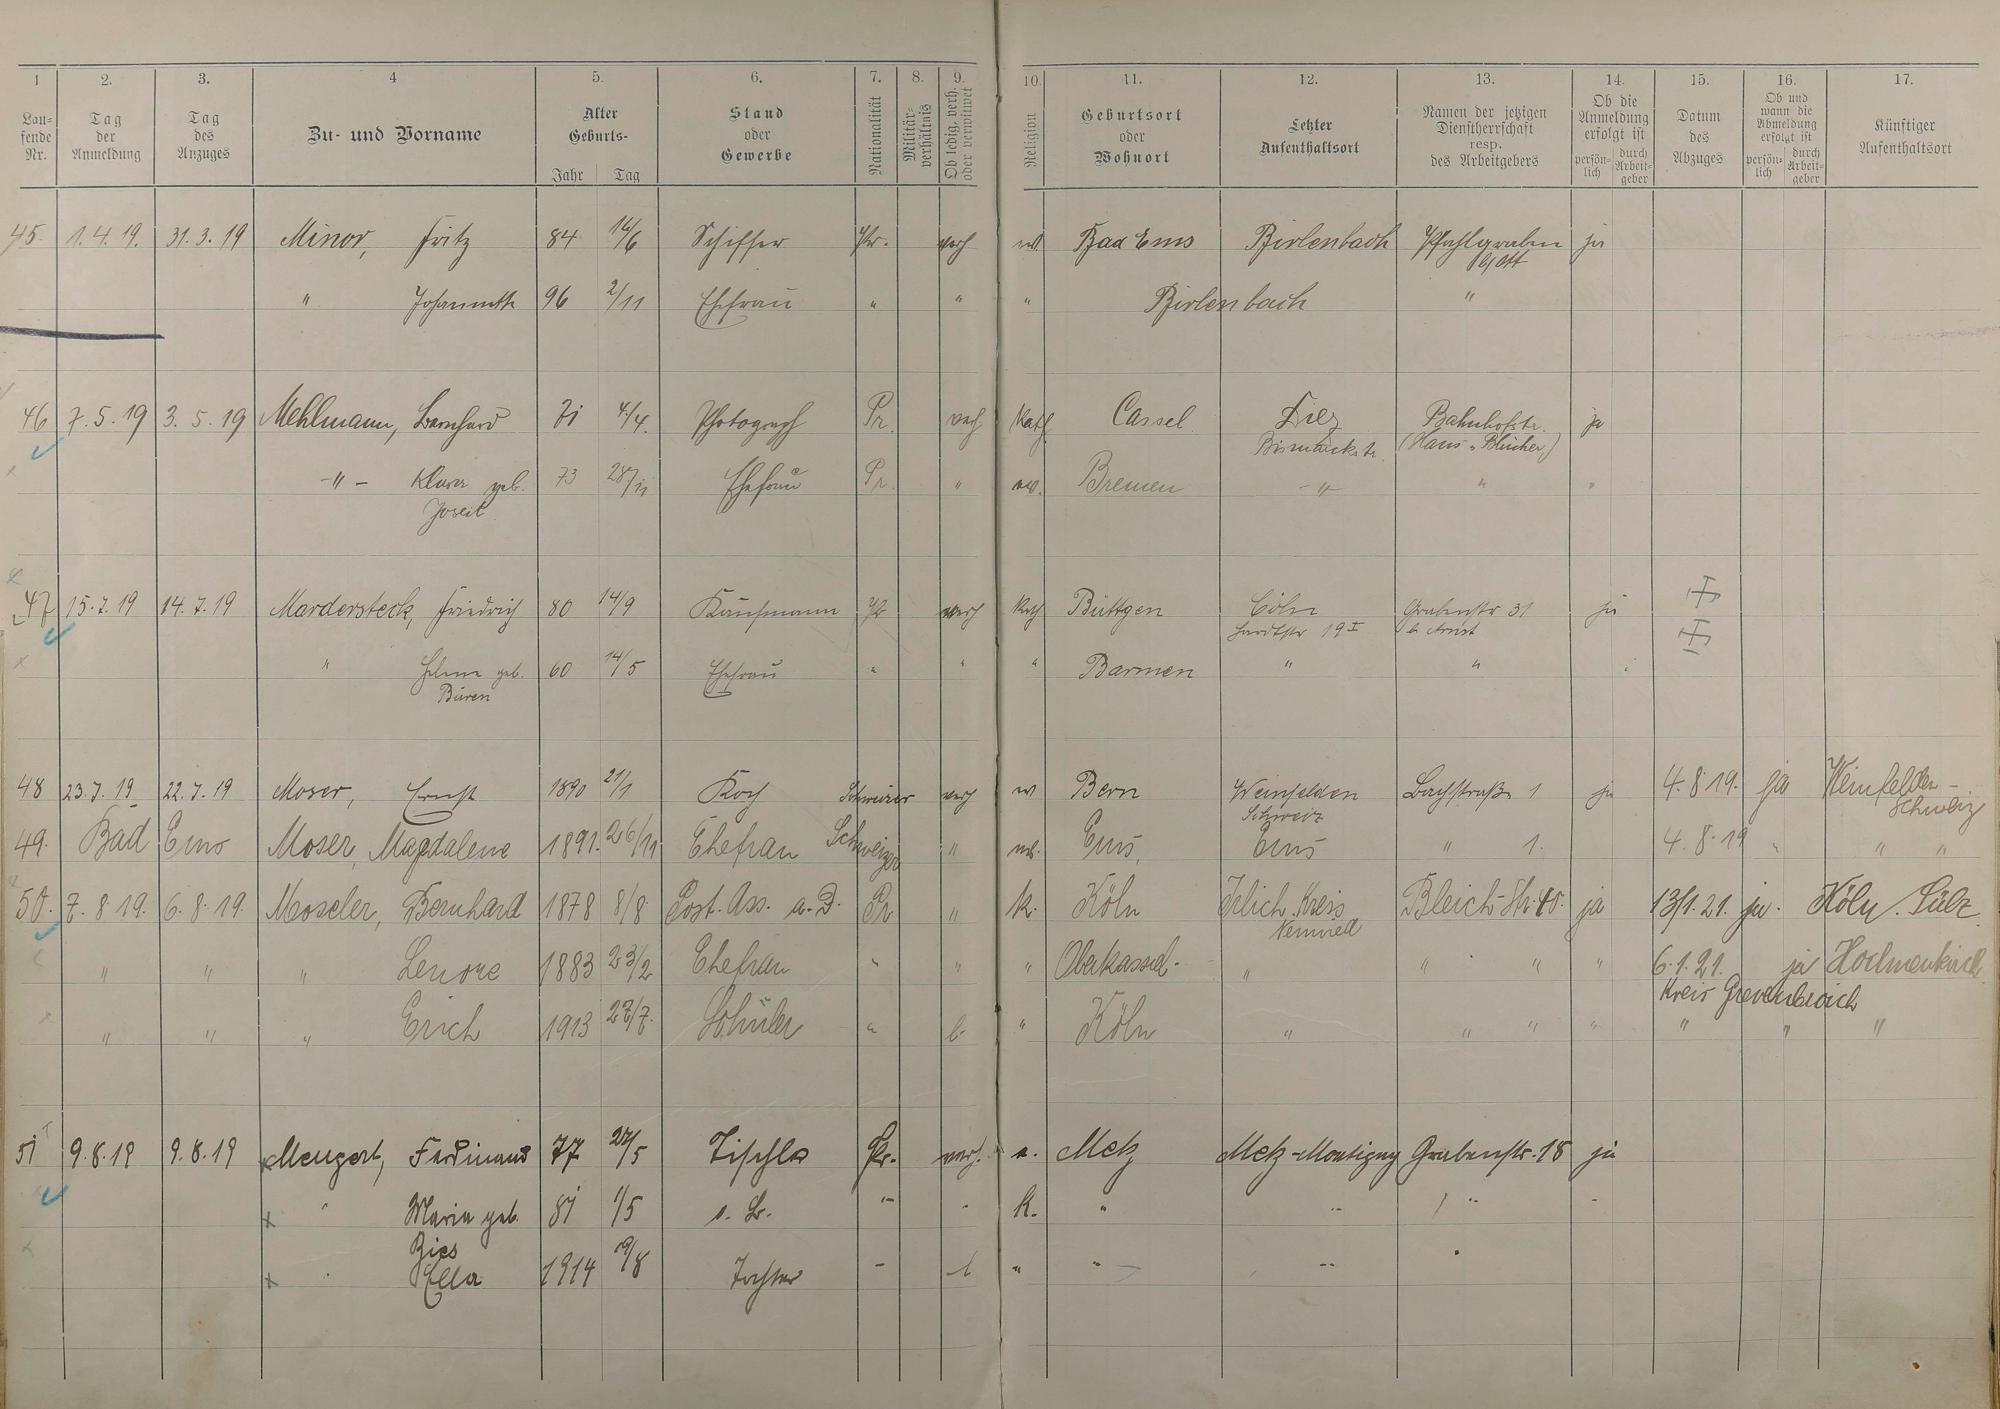 1 2. 3. 4 5. 6. 7. 8. 9. 10. 11. 12. 13. 14. 15. 16. 17.
Lau-fende Nr. Tag der Anmeldung Tag des Anzuges Zu- und Vorname Alter Geburts- Jahr Tag Stand oder Gewerbe Nationalität Militär-verhältnis Ob ledig, verh. oder verwitwet Religion Geburtsort oder Wohnort Letzter Aufenthaltsort Namen der jetzigen Dienstherrschaft resp. des Arbeitgebers Ob die Anmeldung erfolgt ist persön-lich durch Arbeit-geber Datum des Abzuges Ob und wann die Abmeldung erfolgt ist persön-lich durch Arbeit-geber Künftiger Aufenthaltsort
45. 1.4.19. 31.3.19 Minor, Fritz 84 Schiffer Pr. verh Bad Ems Birlenbach Pfahlgraben ja
" 96 2/11 Ehefrau " " " Birlenbach "
46 7.5.19 3.5.19 Mehlmann, Bernhard 71 4/4. Photograph Pr. verh Kath. Cassel Diez Bahnhofstr. ja
Bismarckstr. (Haus "Blücher")
-"- Klara geb. 73 28/11 Ehefrau Pr. " Bremen -"- " "
47 15.7.19 14.7.19 Mardersteck, Friedrich 80 14/9 Kaufmann Pr verh Kath Büttgen Cöln Grabenstr 31 ja
19 I
" Helene geb. 60 14/5 Ehefrau " " " Barmen " "
Büren
48 23.7.19 22.7.19 Moser, Ernst 1890 21/1 Koch Schweizer verh Bern Weinfelden Bachstraße 1 ja 4.8.19. ja Weinfelden-
Schweiz Schweiz
49. Bad Ems Moser, Magdalene 1891. 26/11 Ehefrau Schweizer " Ems, Ems " 1. 4.8.19 " " "
50. 7.8.19. 6.8.19. Moseler, Bernhard 1878 8/8. Post. Ass. a.D. Pr " k. Köln Irlich Kreis Bleich-Str. 40. ja 13/1.21. ja. Köln. Sülz
Neuwied
" " " Lenore 1883 23/2 Ehefrau " " " Oberkassel. " " " " 6.1.21. ja
Kreis Grevenbroich
" " " Erich 1913 27/7. Schüler " l. " Köln " " " " " " "
51 9.8.19 9.8.19 Mengert, Ferdinand 77 27/5 Tischler Pr. verh. e. Metz Metz-Montigny Grabenstr. 18 ja
" Maria geb. 81 1/5 k. " "
Bies
Ella 1914 19/8 Tochter - l " " "